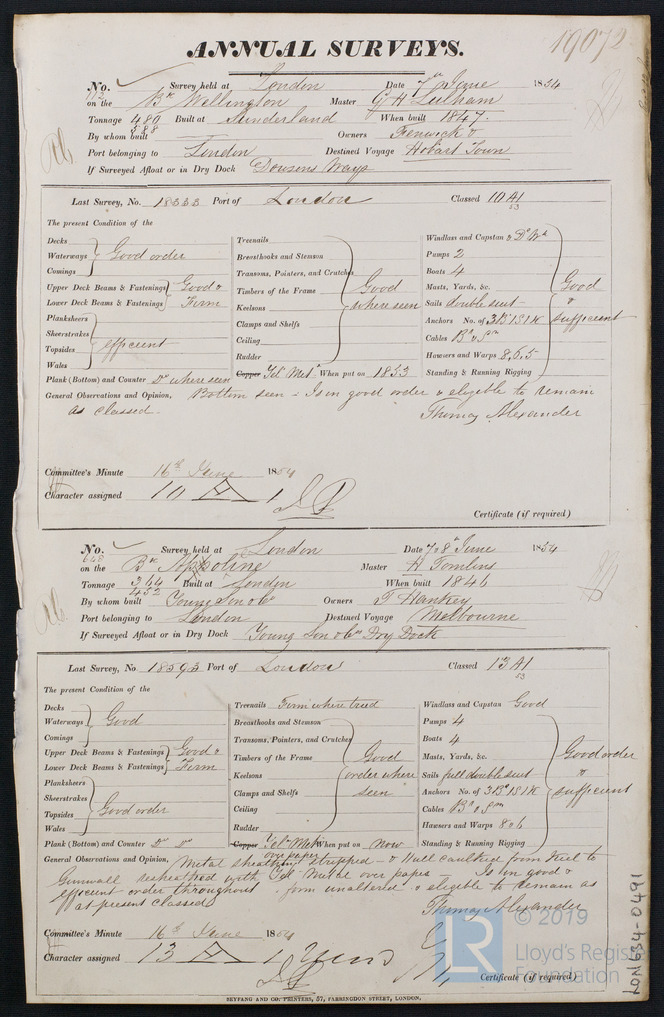 ANNUAL SURVEYS. 19072
No. Survey held at London Date 7th June 1854
on the Bk Wellington Master G H Lulham
Tonnage 480 Built at Sunderland When built 1847
588
By whom built Owners Fenwick &
Port belonging to London Destined Voyage Hobart Town
If Surveyed Afloat or in Dry Dock Dowsons Ways
Last Survey, No. 18333 Port of London Classed 10 A1
53
The present Condition of the
Decks Treenails Windlass and Capstan
Waterways Good order Breasthooks and Stemson Pumps 2
Comings Transoms, Pointers, and Crutches Boats 4
Upper Deck Beams & Fastenings Good & Timbers of the Frame Good Masts, Yards, &c. Good
Lower Deck Beams & Fastenings Firm Keelsons where seen Sails double suit &
Planksheers Clamps and Shelfs Anchors No. of 3B 1S 1K sufficient
Sheerstrakes Ceiling Cables
Topsides efficient Rudder Hawsers and Warps 8,6,5
Wales Copper Yel. Metl When put on 1853 Standing & Running Rigging
Plank (Bottom) and Counter Do where seen
General Observations and Opinion, Bottom seen - Is in good order & eligible to remain
as classed. Thomas Alexander
Committee's Minute 16th June 1854
Character assigned 10 A 1
Certificate (if required)
No. Survey held at London Date 7 & 8th June 1854
on the Bk Appoline Master H Tomlins
Tonnage 364 Built at London When built 1846
452
By whom built Young Son & Co Owners T Hankey
Port belonging to London Destined Voyage Melbourne
If Surveyed Afloat or in Dry Dock Young Son & Cos Dry Dock
Last Survey, No 18593 Port of London Classed 13 A1
53
The present Condition of the
Decks Treenails Firm where tried Windlass and Capstan Good
Waterways Good Breasthooks and Stemson Pumps 4
Comings Transoms, Pointers, and Crutches Boats 4
Upper Deck Beams & Fastenings Good & Timbers of the Frame Good Masts, Yards, &c. Good order
Lower Deck Beams & Fastenings Firm Keelsons order where Sails full double suit &
Planksheers Clamps and Shelfs seen Anchors No. of 3B 1S 1K sufficient
Sheerstrakes Good order Ceiling Cables
Topsides Rudder Hawsers and Warps 8 & 6
Wales Copper Yel. Metl When put on Now Standing & Running Rigging
over paper
Plank (Bottom) and Counter Do Do
General Observations and Opinion, Metal sheathing stripped - & Hull caulked from Keel to
Gunwall resheathed with Yel. Metal over paper Is in good &
efficient order throughout - form unaltered & eligible to remain as
at present classed Thomas Alexander
Committee's Minute 16th June 1854
Character assigned 13 A 1
Certificate (if required)
SEYFANG AND CO. PRINTERS, 57, FARRINGDON STREET, LONDON.
LON634-0491
© 2019
LR
Lloyd's Register
Foundation